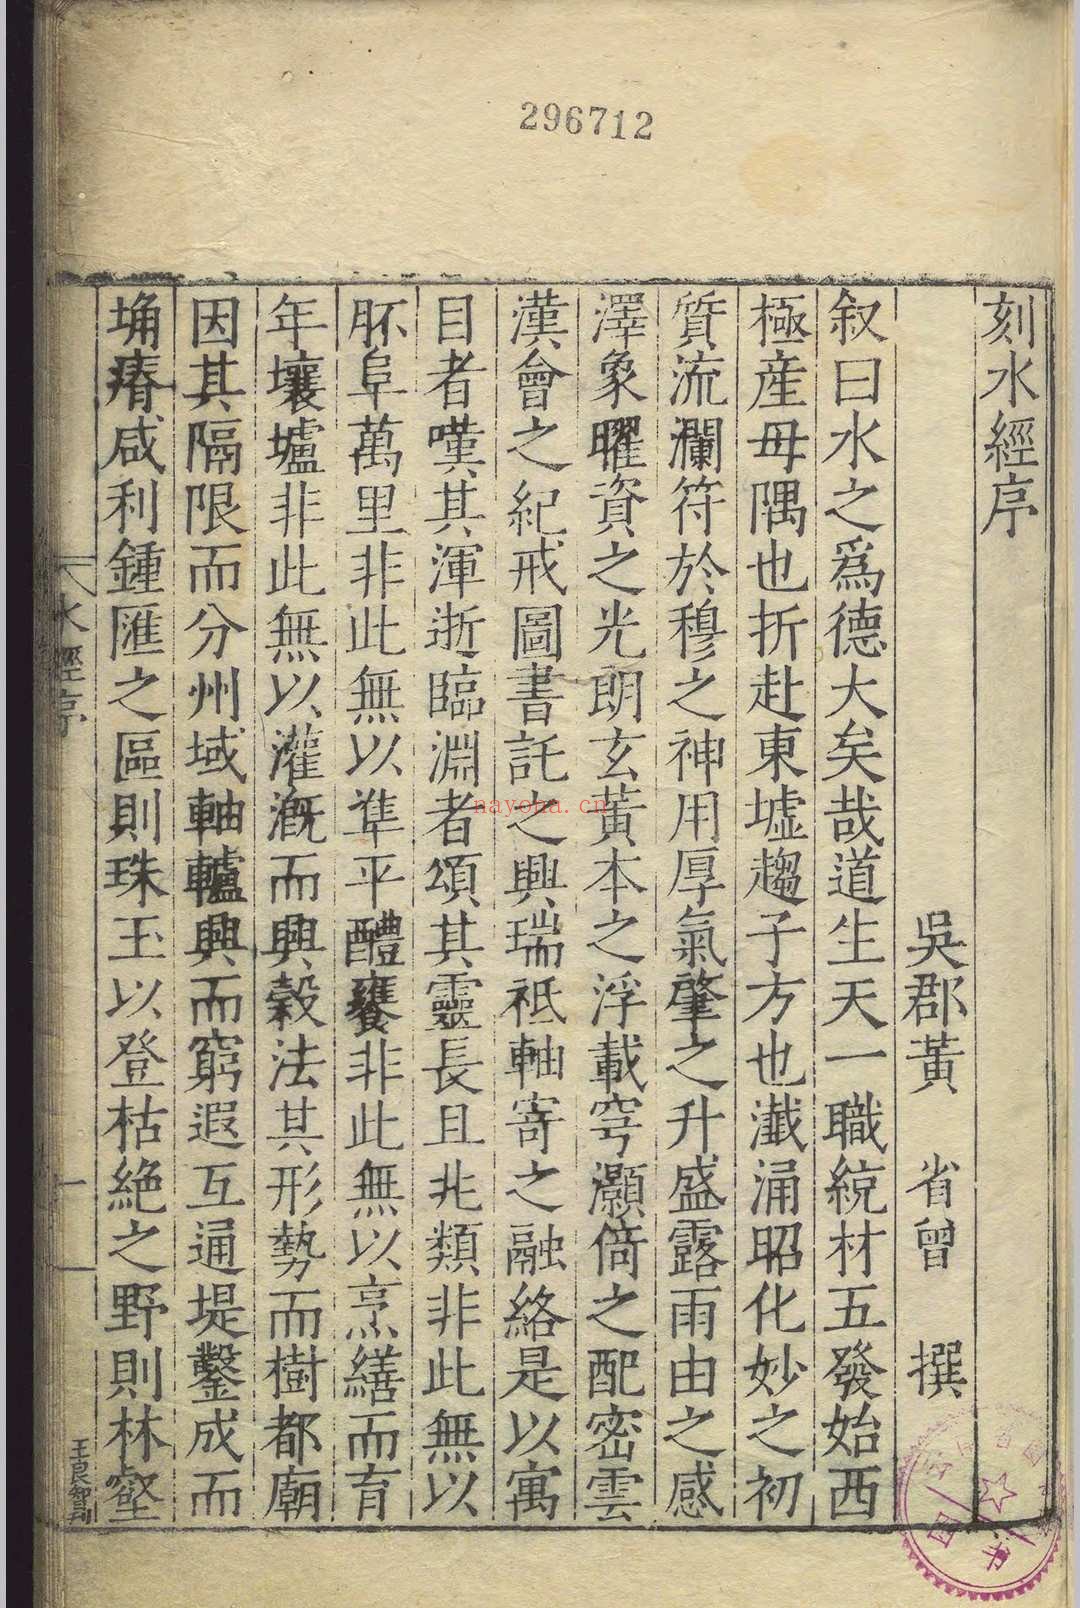 296712
刻水經序
吳郡黃 省曾 撰
叙曰水之爲德大矣哉道生天一職統材五發始西
極產毋隅也折赴東墟趨子方也瀸涌昭化妙之初
質流瀾符於穆之神用厚氣肇之升盛露雨由之感
澤象曜資之光朗玄黃本之浮載穹灝倚之配密雲
漢會之紀戒圖書託之興瑞祇軸寄之融絡是以寓
目者嘆其渾逝臨淵者頌其靈長且兆類非此無以
胚阜萬里非此無以準平醴饔非此無以烹繕而育
年壤壚非此無以灌溉而興穀法其形勢而樹都廟
因其隔限而分州域軸轤興而窮遐互通堤鑿成而
埆瘠咸利鍾匯之區則珠玉以登枯絕之野則林壑
水經序
一
nayona.cn